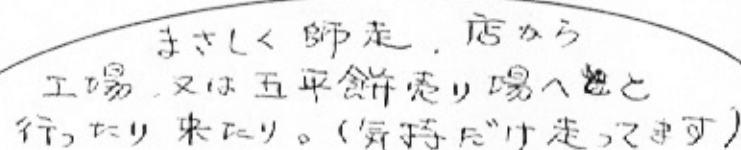 まさしく師走、店から
工場、又は五平餅売り場へと
行ったり来たり。(気持だけ走ってます)